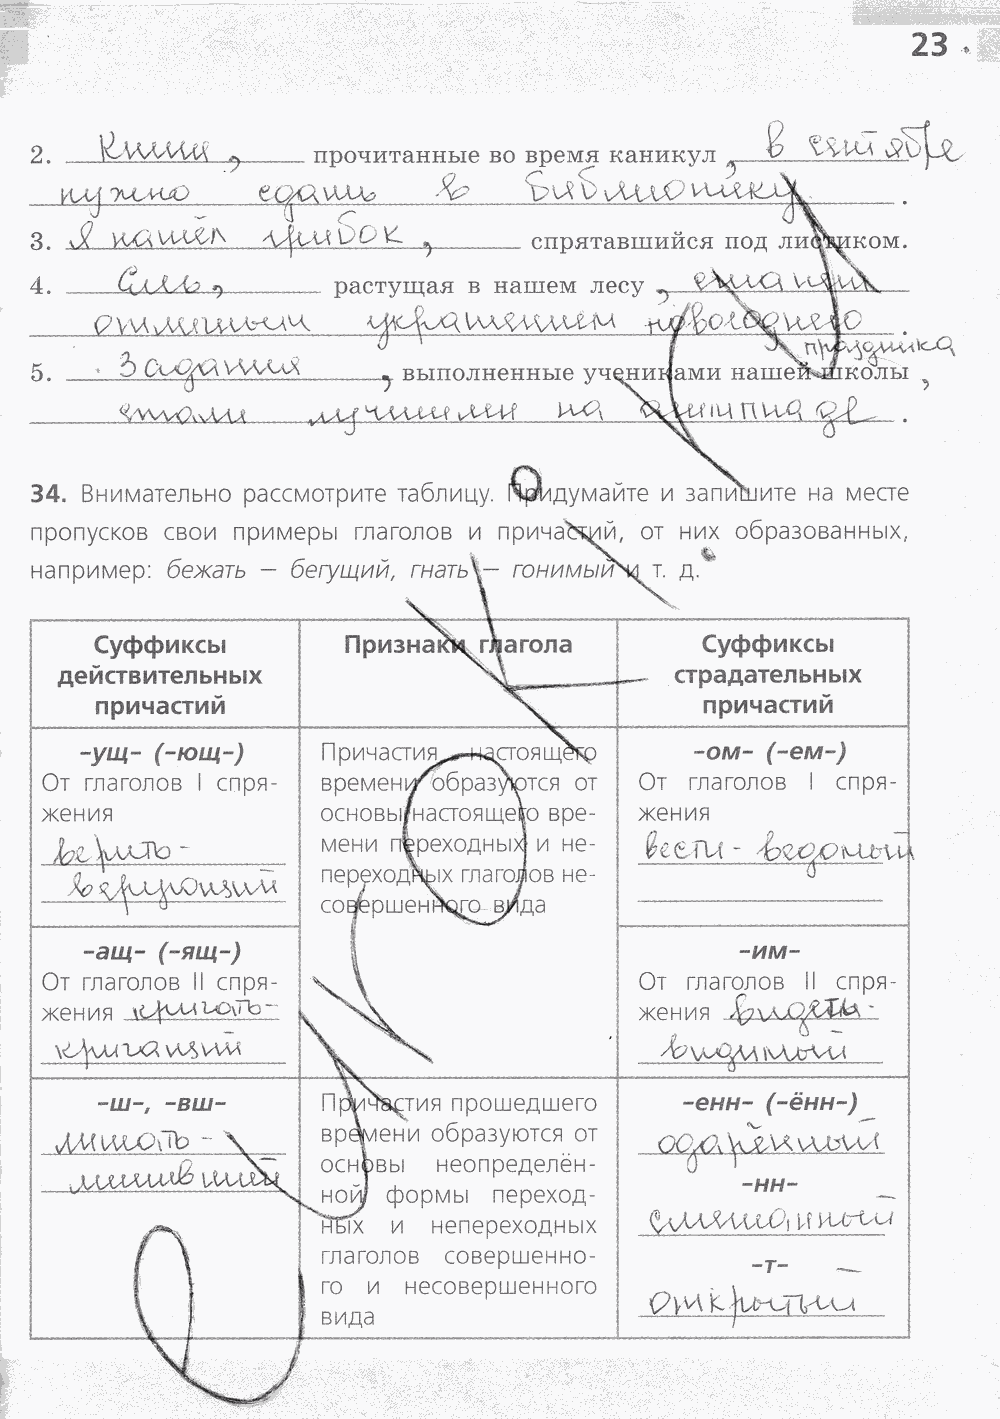 23
2. Книги, прочитанные во время каникул, в сентябре
нужно сдать в библиотеку.
3. Я нашёл грибок, спрятавшийся под листиком.
4. Ель, растущая в нашем лесу, станет
отличным украшением новогоднего
праздника.
5. Задания, выполненные учениками нашей школы,
стали лучшими на олимпиаде.
34. Внимательно рассмотрите таблицу. Придумайте и запишите на месте
пропусков свои примеры глаголов и причастий, от них образованных,
например: бежать — бегущий, гнать — гонимый и т. д.
Суффиксы
действительных
причастий
Признаки глагола
Суффиксы
страдательных
причастий
–ущ– (–ющ–)
От глаголов I спря-
жения
верить-
Причастия настоящего
времени образуются от
основы настоящего вре-
мени переходных и не-
переходных глаголов не-
совершенного вида
–ом– (–ем–)
От глаголов I спря-
жения
вести - ведомый
–ащ– (–ящ–)
От глаголов II спря-
жения кричать-
кричащий
–им–
От глаголов II спря-
жения видеть-
видимый
–ш–, –вш–
Причастия прошедшего
времени образуются от
основы неопределён-
ной формы переход-
ных и непереходных
глаголов совершенно-
го и несовершенного
вида
–енн– (–ённ–)
одарённый
–нн–
смешанный
–т–
открытый